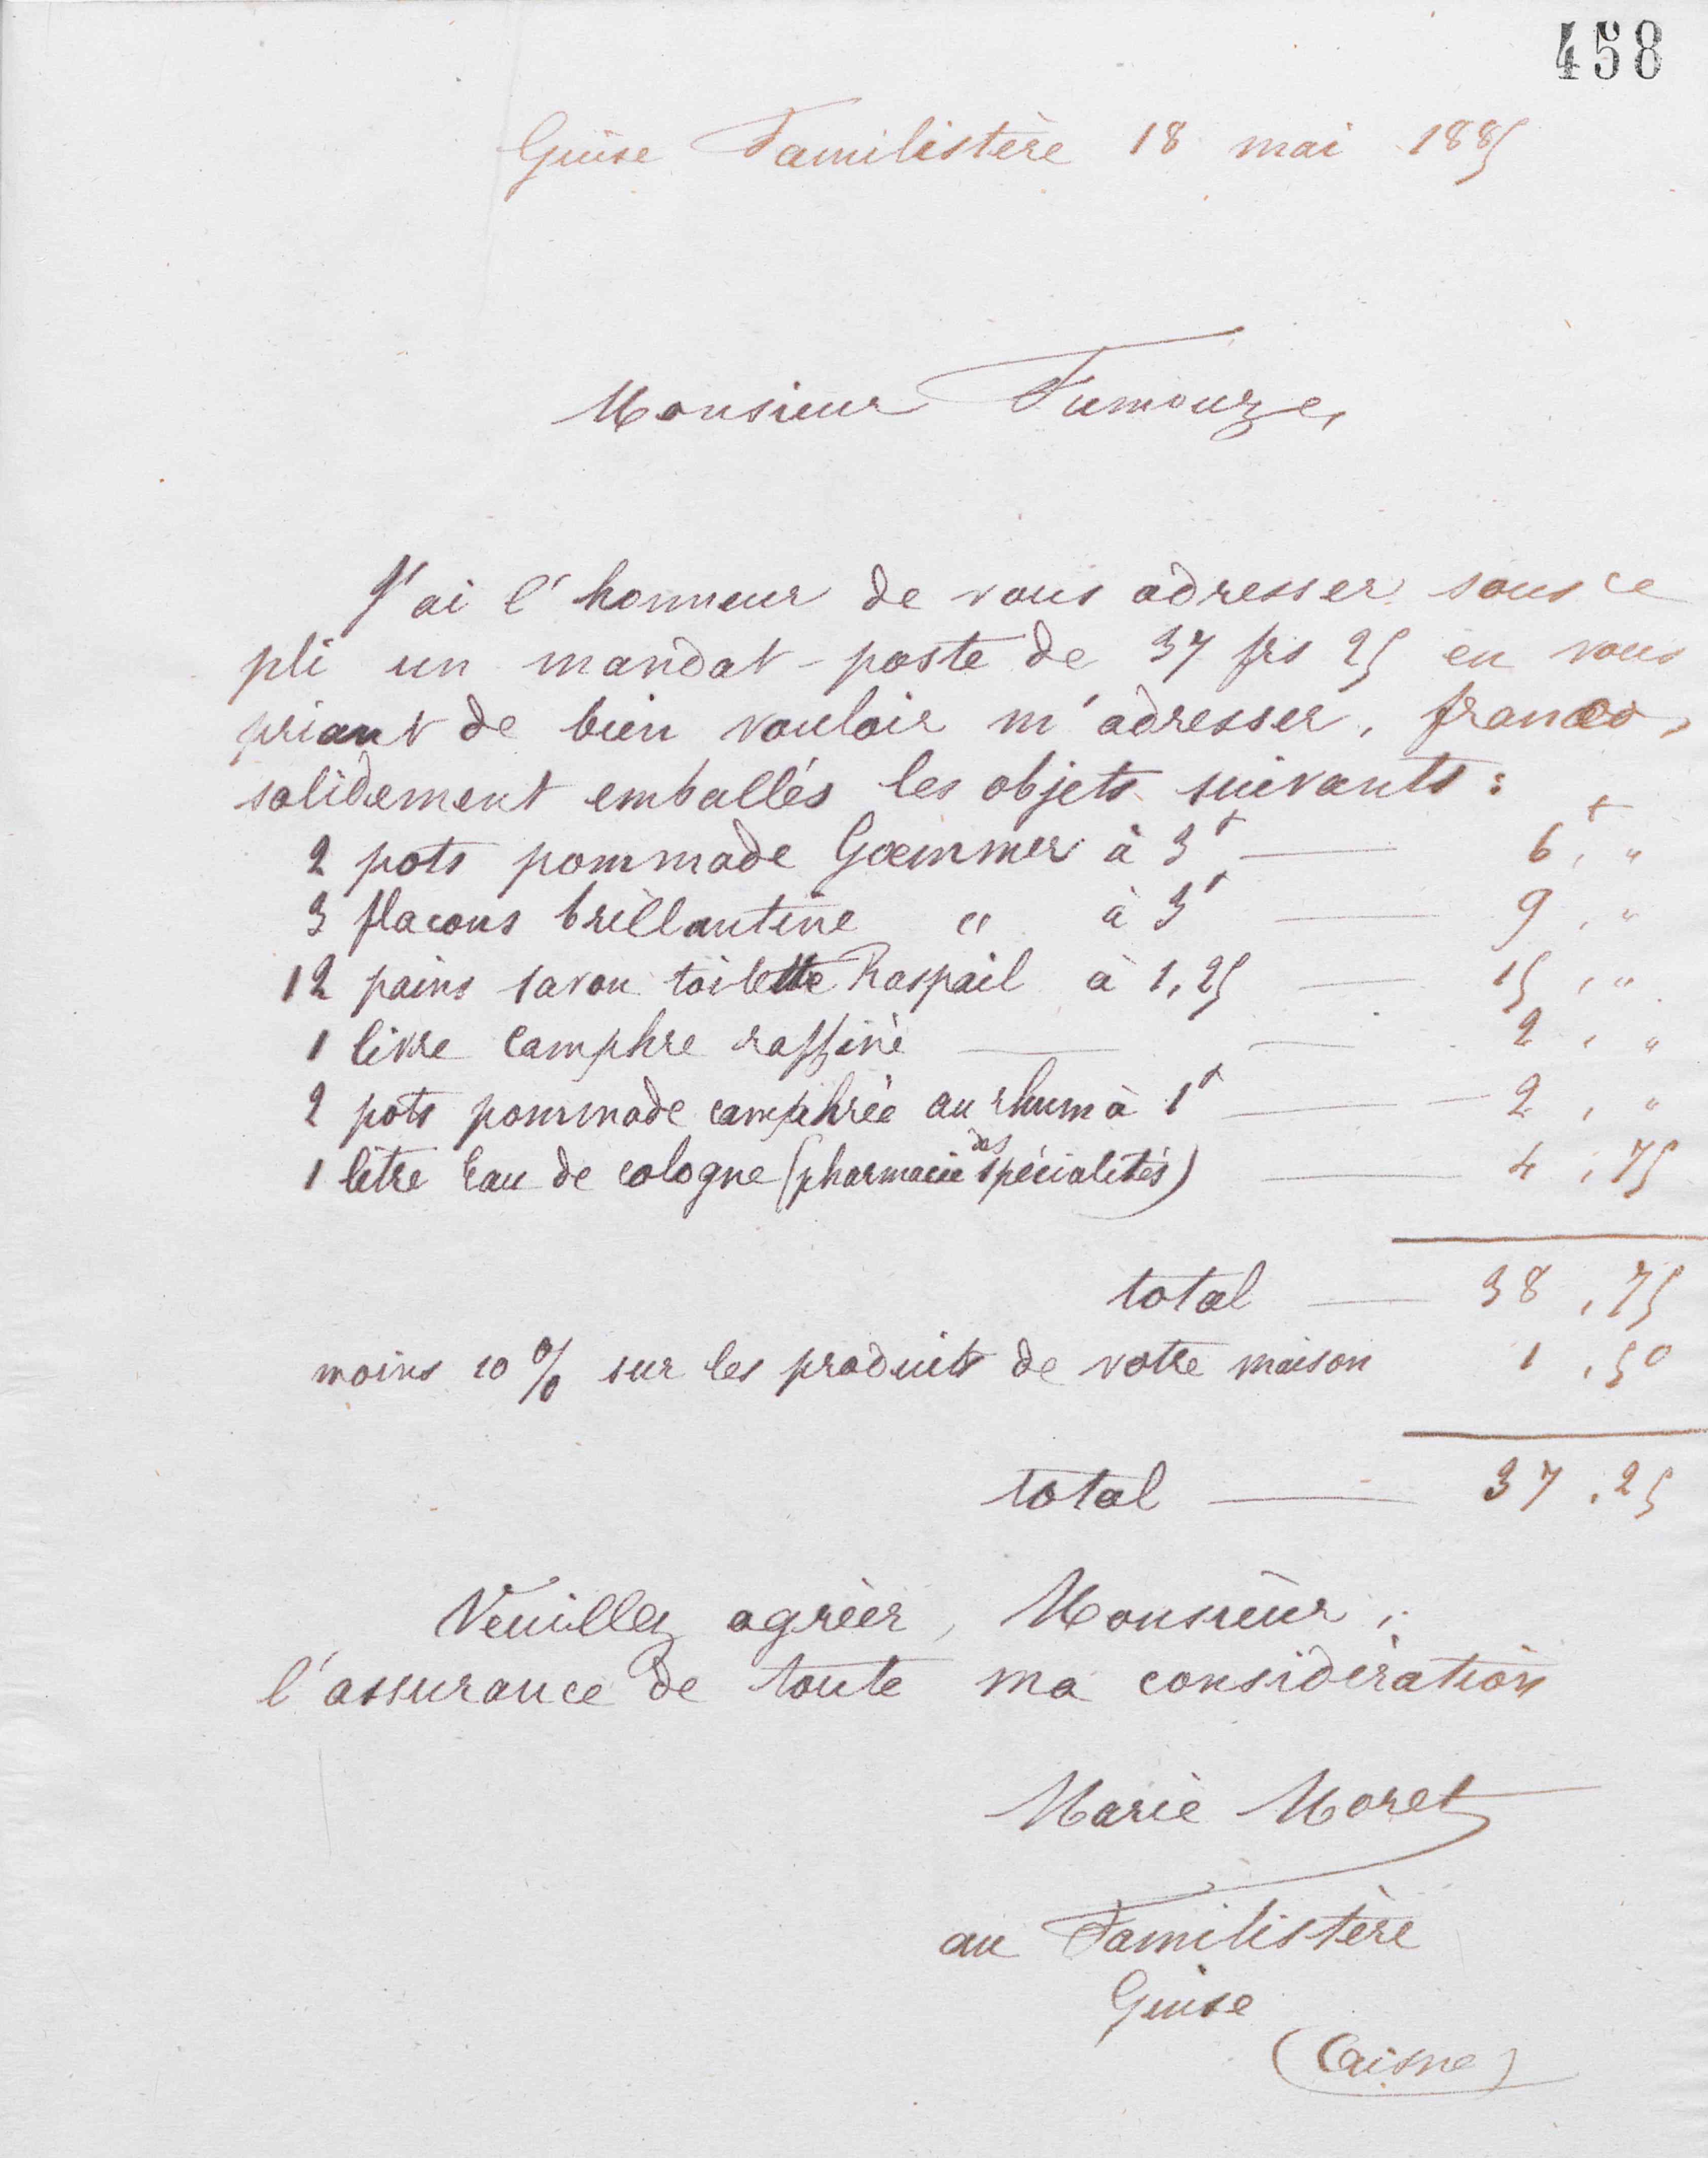 458
Guise Familistère 18 mai 1885
Monsieur Fumouze,
J'ai l'honneur de vous adresser sous ce
pli un mandat-poste de 37 frs 25 en vous
priant de bien vouloir m'adresser, franco,
solidement emballés les objets suivants :
2 pots pommade Gœmmer à 3f — 6f, "
3 flacons brillantine " à 3f — 9, "
12 pains savon toilette Raspail à 1,25 — 15, "
1 livre camphre raffiné — — 2, "
2 pots pommade camphrée au rhum à 1f — 2, "
1 litre Eau de cologne (pharmacie des spécialités) — 4,75
total — 38,75
moins 10 % sur les produits de votre maison 1,50
total — 37,25
Veuillez agréer, Monsieur,
l'assurance de toute ma considération
Marie Moret
au Familistère
Guise
(Aisne)